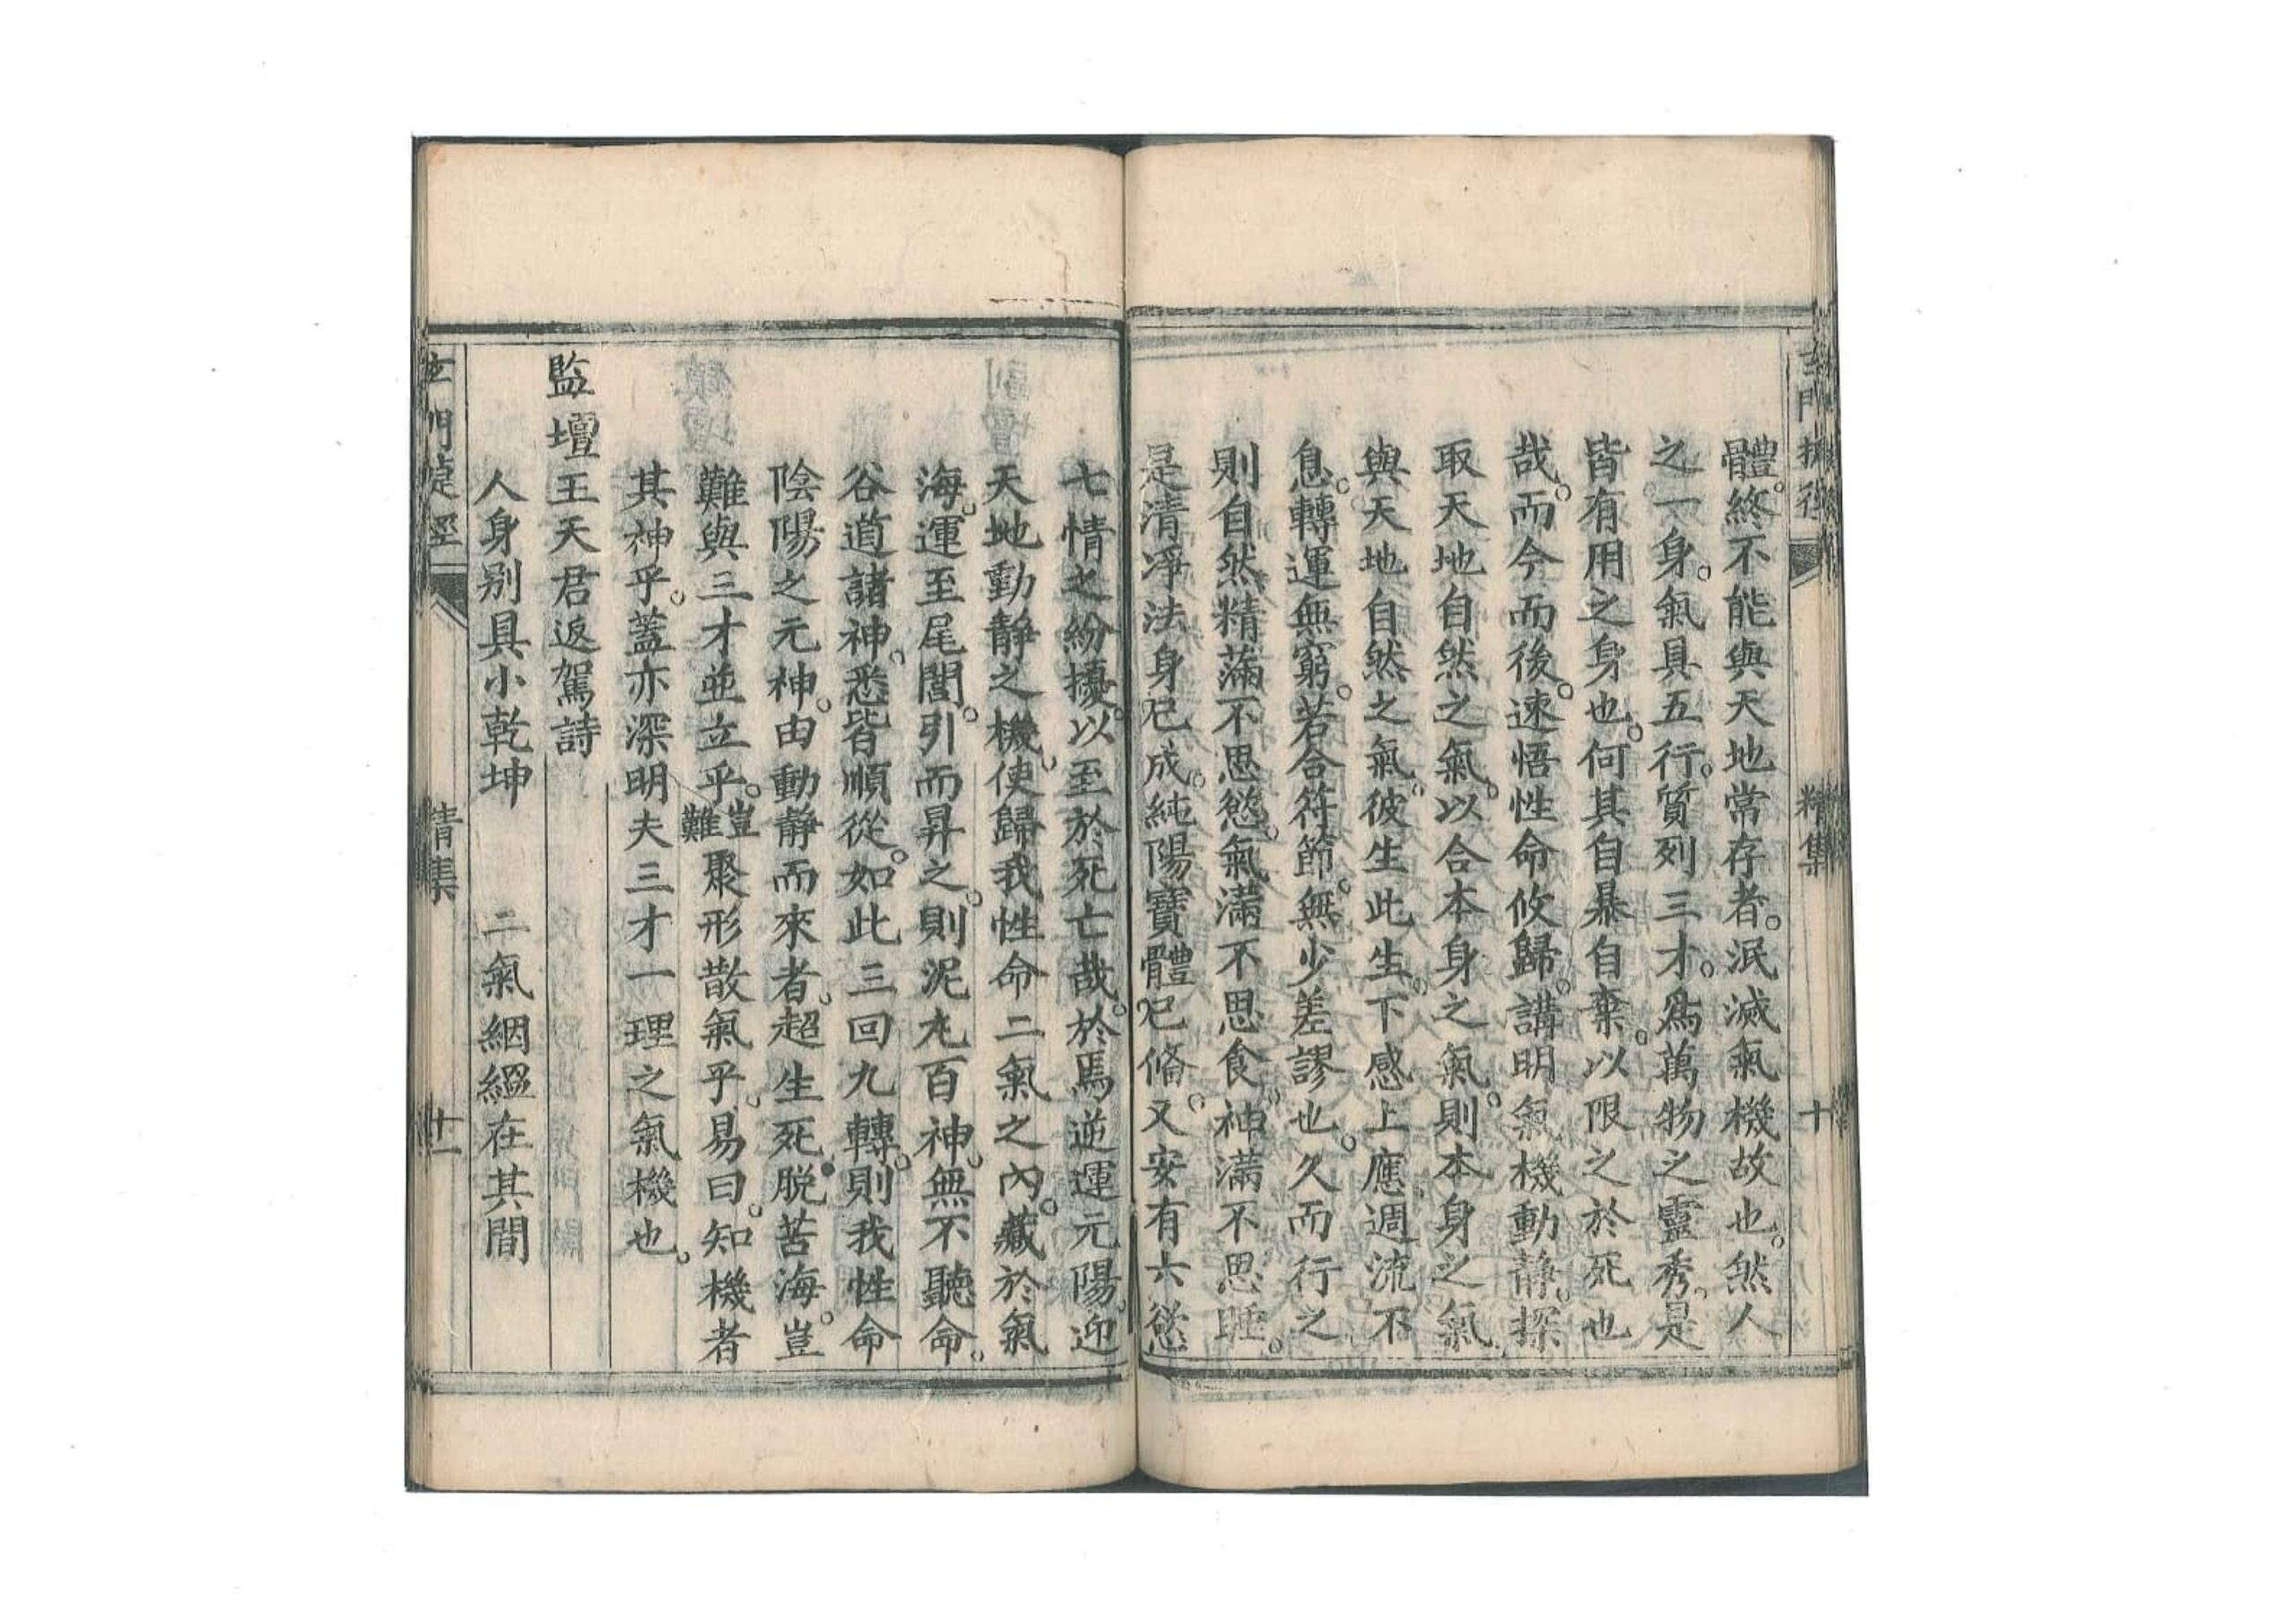 玄門捷徑 精集 十
體。終不能與天地當存者。泯滅氣機故也。然人
之一身。氣具五行。質列三才。爲萬物之靈秀。是
皆有用之身也。何其自暴自棄。以限之於死也
哉。而今而後。速悟性命攸歸。講明氣機動靜。探
取天地自然之氣。以合本身之氣。則本身之氣
與天地自然之氣。彼生此生。下感上應。週流不
息。轉運無窮。若合符節。無少差謬也。久而行之
則自然精滿不思慾。氣滿不思食。神滿不思睡。
是清凈法身已成。純陽寶體已脩。又安有六慾
七情之紛擾。以至於死亡哉。於焉逆運元陽。迎
天地動靜之機。使歸我性命二氣之內。藏於氣
海。運至尾閭。引而昇之。則泥丸百神。無不聽命。
谷道諸神。悉皆順從。如此三回九轉。則我性命
陰陽之元神。由動靜而來者。超生死。脱苦海。豈
難與三才並立乎。豈難聚形散氣乎。易曰。知機者
其神乎。蓋亦深明夫三才一理之氣機也。
監壇王天君返駕詩
人身别具小乾坤 二氣絪縕在其間
玄門捷徑 精集 十一